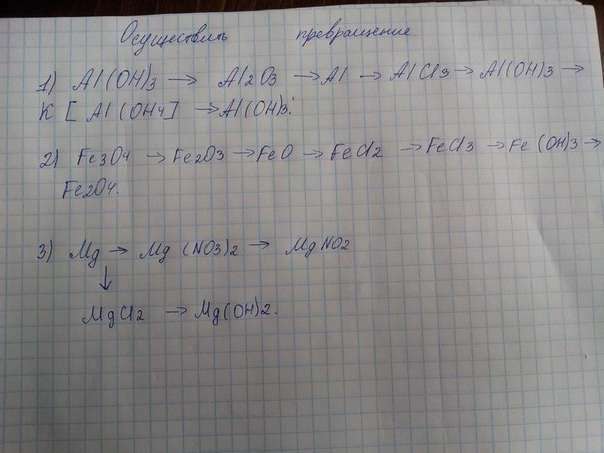 Осуществить превращение
1) Al(OH)3 → Al2O3 → Al → AlCl3 → Al(OH)3 →
K [ Al (OH4] → Al(OH)3.
2) Fe3O4 → Fe2O3 → FeO → FeCl2 → FeCl3 → Fe (OH)3 →
Fe2O4.
3) Mg → Mg (NO3)2 → MgNO2
↓
MgCl2 → Mg(OH)2.